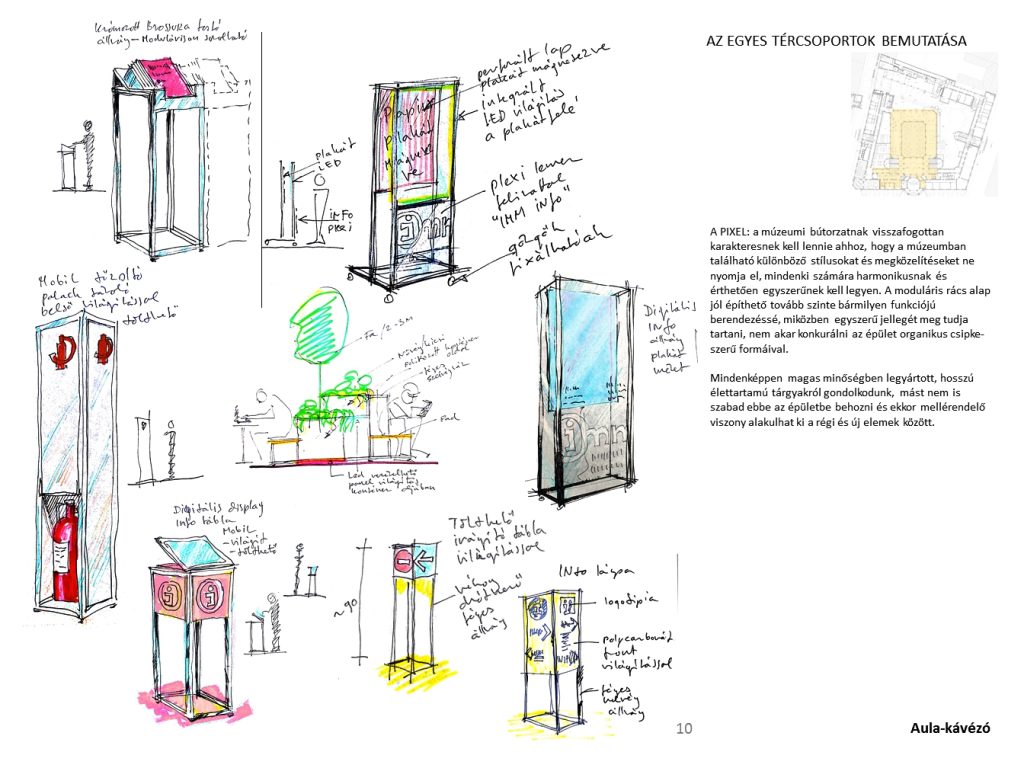 AZ EGYES TÉRCSOPORTOK BEMUTATÁSA
A PIXEL: a múzeumi bútorzatnak visszafogottan
karakteresnek kell lennie ahhoz, hogy a múzeumban
található különböző stílusokat és megközelítéseket ne
nyomja el, mindenki számára harmonikusnak és
érthetően egyszerűnek kell legyen. A moduláris rács alap
jól építhető tovább szinte bármilyen funkciójú
berendezéssé, miközben egyszerű jellegét meg tudja
tartani, nem akar konkurálni az épület organikus csipke-
szerű formáival.
Mindenképpen magas minőségben legyártott, hosszú
élettartamú tárgyakról gondolkodunk, mást nem is
szabad ebbe az épületbe behozni és ekkor mellérendelő
viszony alakulhat ki a régi és új elemek között.
állvány – Modulárisan
perforált lap
plakát mágnesezve
integrált
LED világítás
a plakát felé
Papír
plakát
mágnesez
ve
plakát
LED
INFO
plexi lemez
felirattal
"IMM INFO"
görgők
fixálhatóak
Mobil tűzoltó
palack tároló
belső világítással
tölthető
Fa / 2-3M
Digitális
INFO
állvány
plakát
méret
Digitális display
info tábla
Mobil
- világít
- tölthető
Tölthető
irányító tábla
világítással
vékony
fémes
állvány
~90
INFO lámpa
logotípia
polycarbonát
front
világítással
fémes
állvány
10
Aula-kávézó